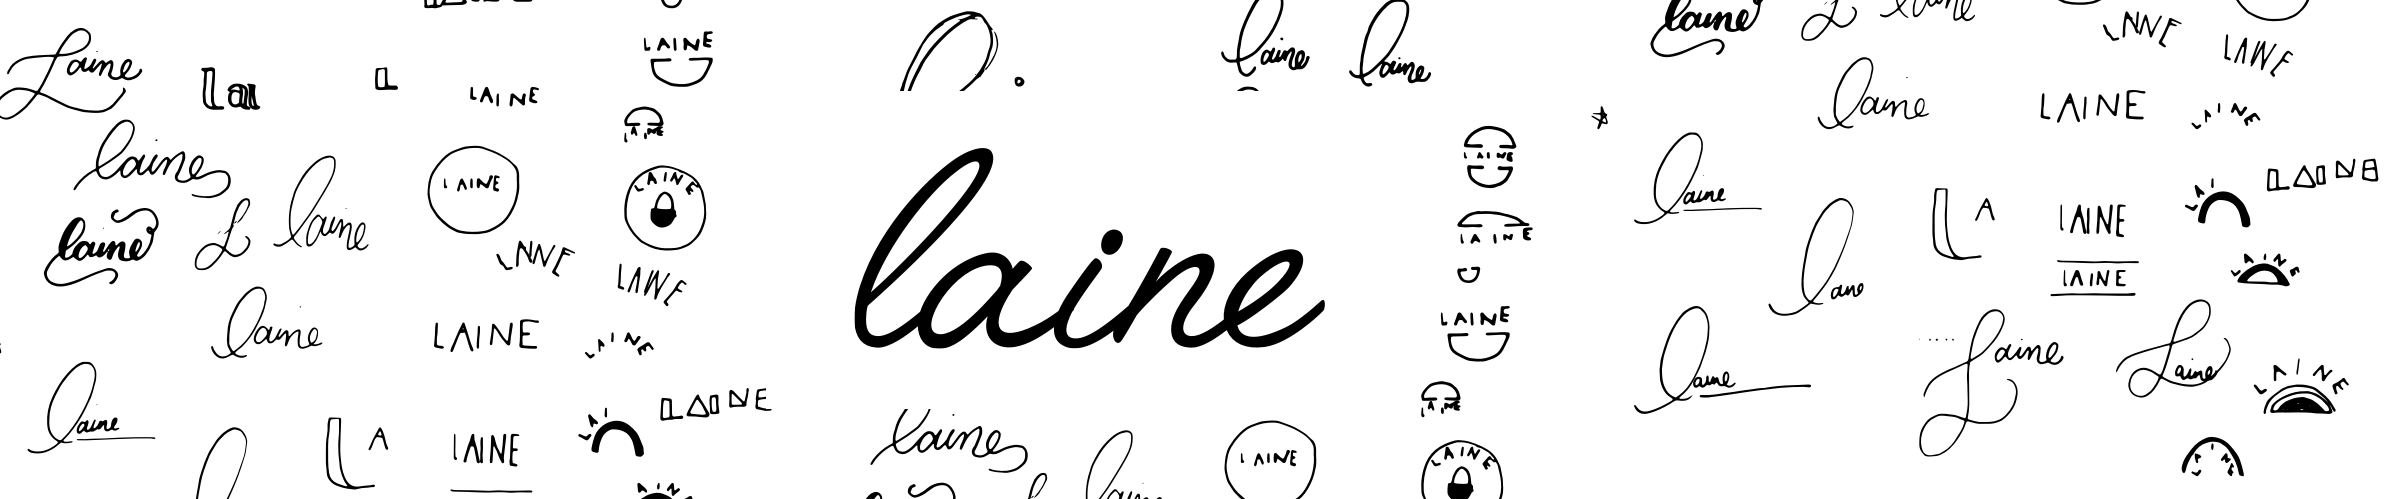 laine
LAINE
laine
laine
laine
Laine
la
L
LAINE
LAINE
laine
LAINE
LAINE
laines
L
laine
LAINE
laine
laine
LAINE
LAINE
LAINE
laine
LAINE
LAINE
L A
LAINE
LAINE
laine
LAINE
LAINE
LAINE
LAINE
LAINE
laines
LAINE
LAINE
laine
L
laine
LAINE
laine
LAINE
LAINE
laine
LAINE
L A
LAINE
LAINE
LAINE
laine
Laine
Laine
LAINE
LAINE